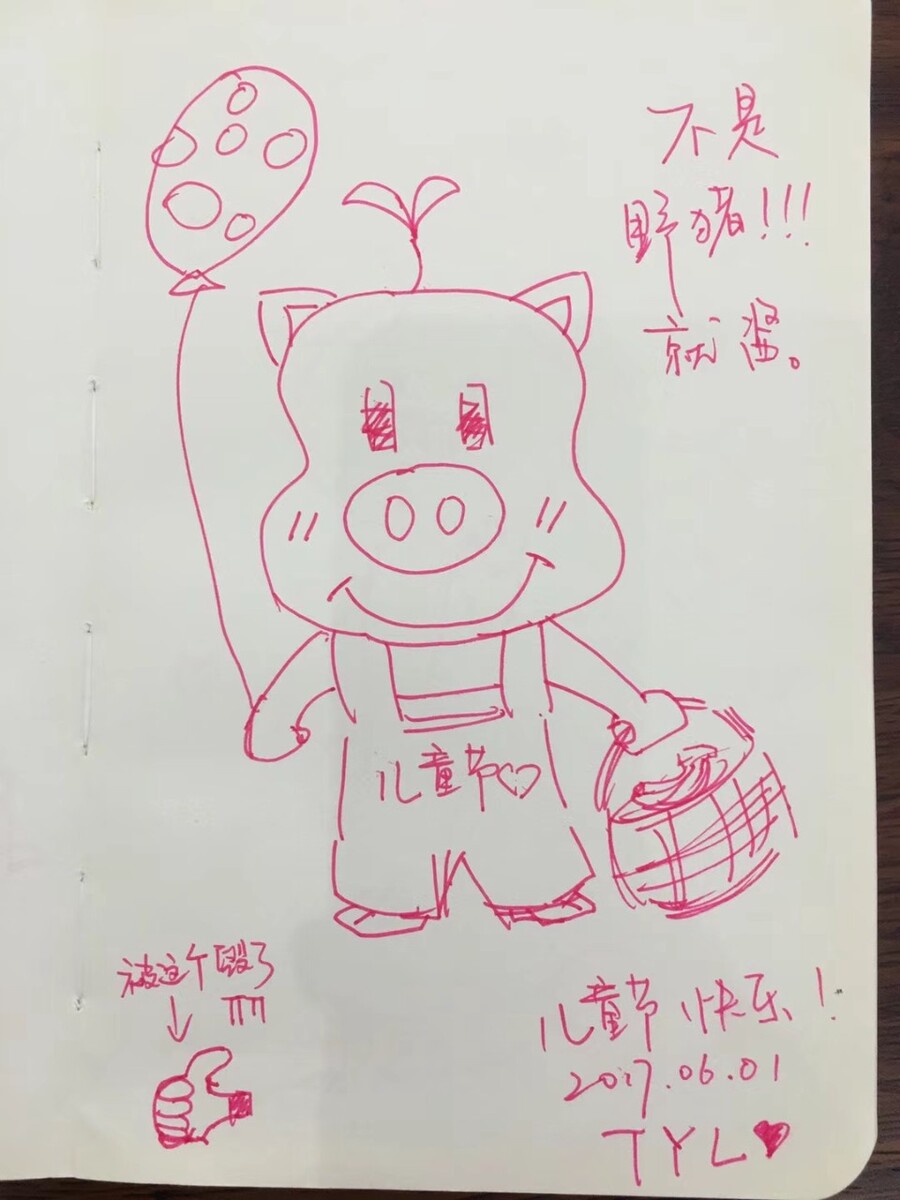 不是
野猪!!!
就酱。
儿童节♡
被这个毁了
儿童节快乐!
2017.06.01
TYL♥